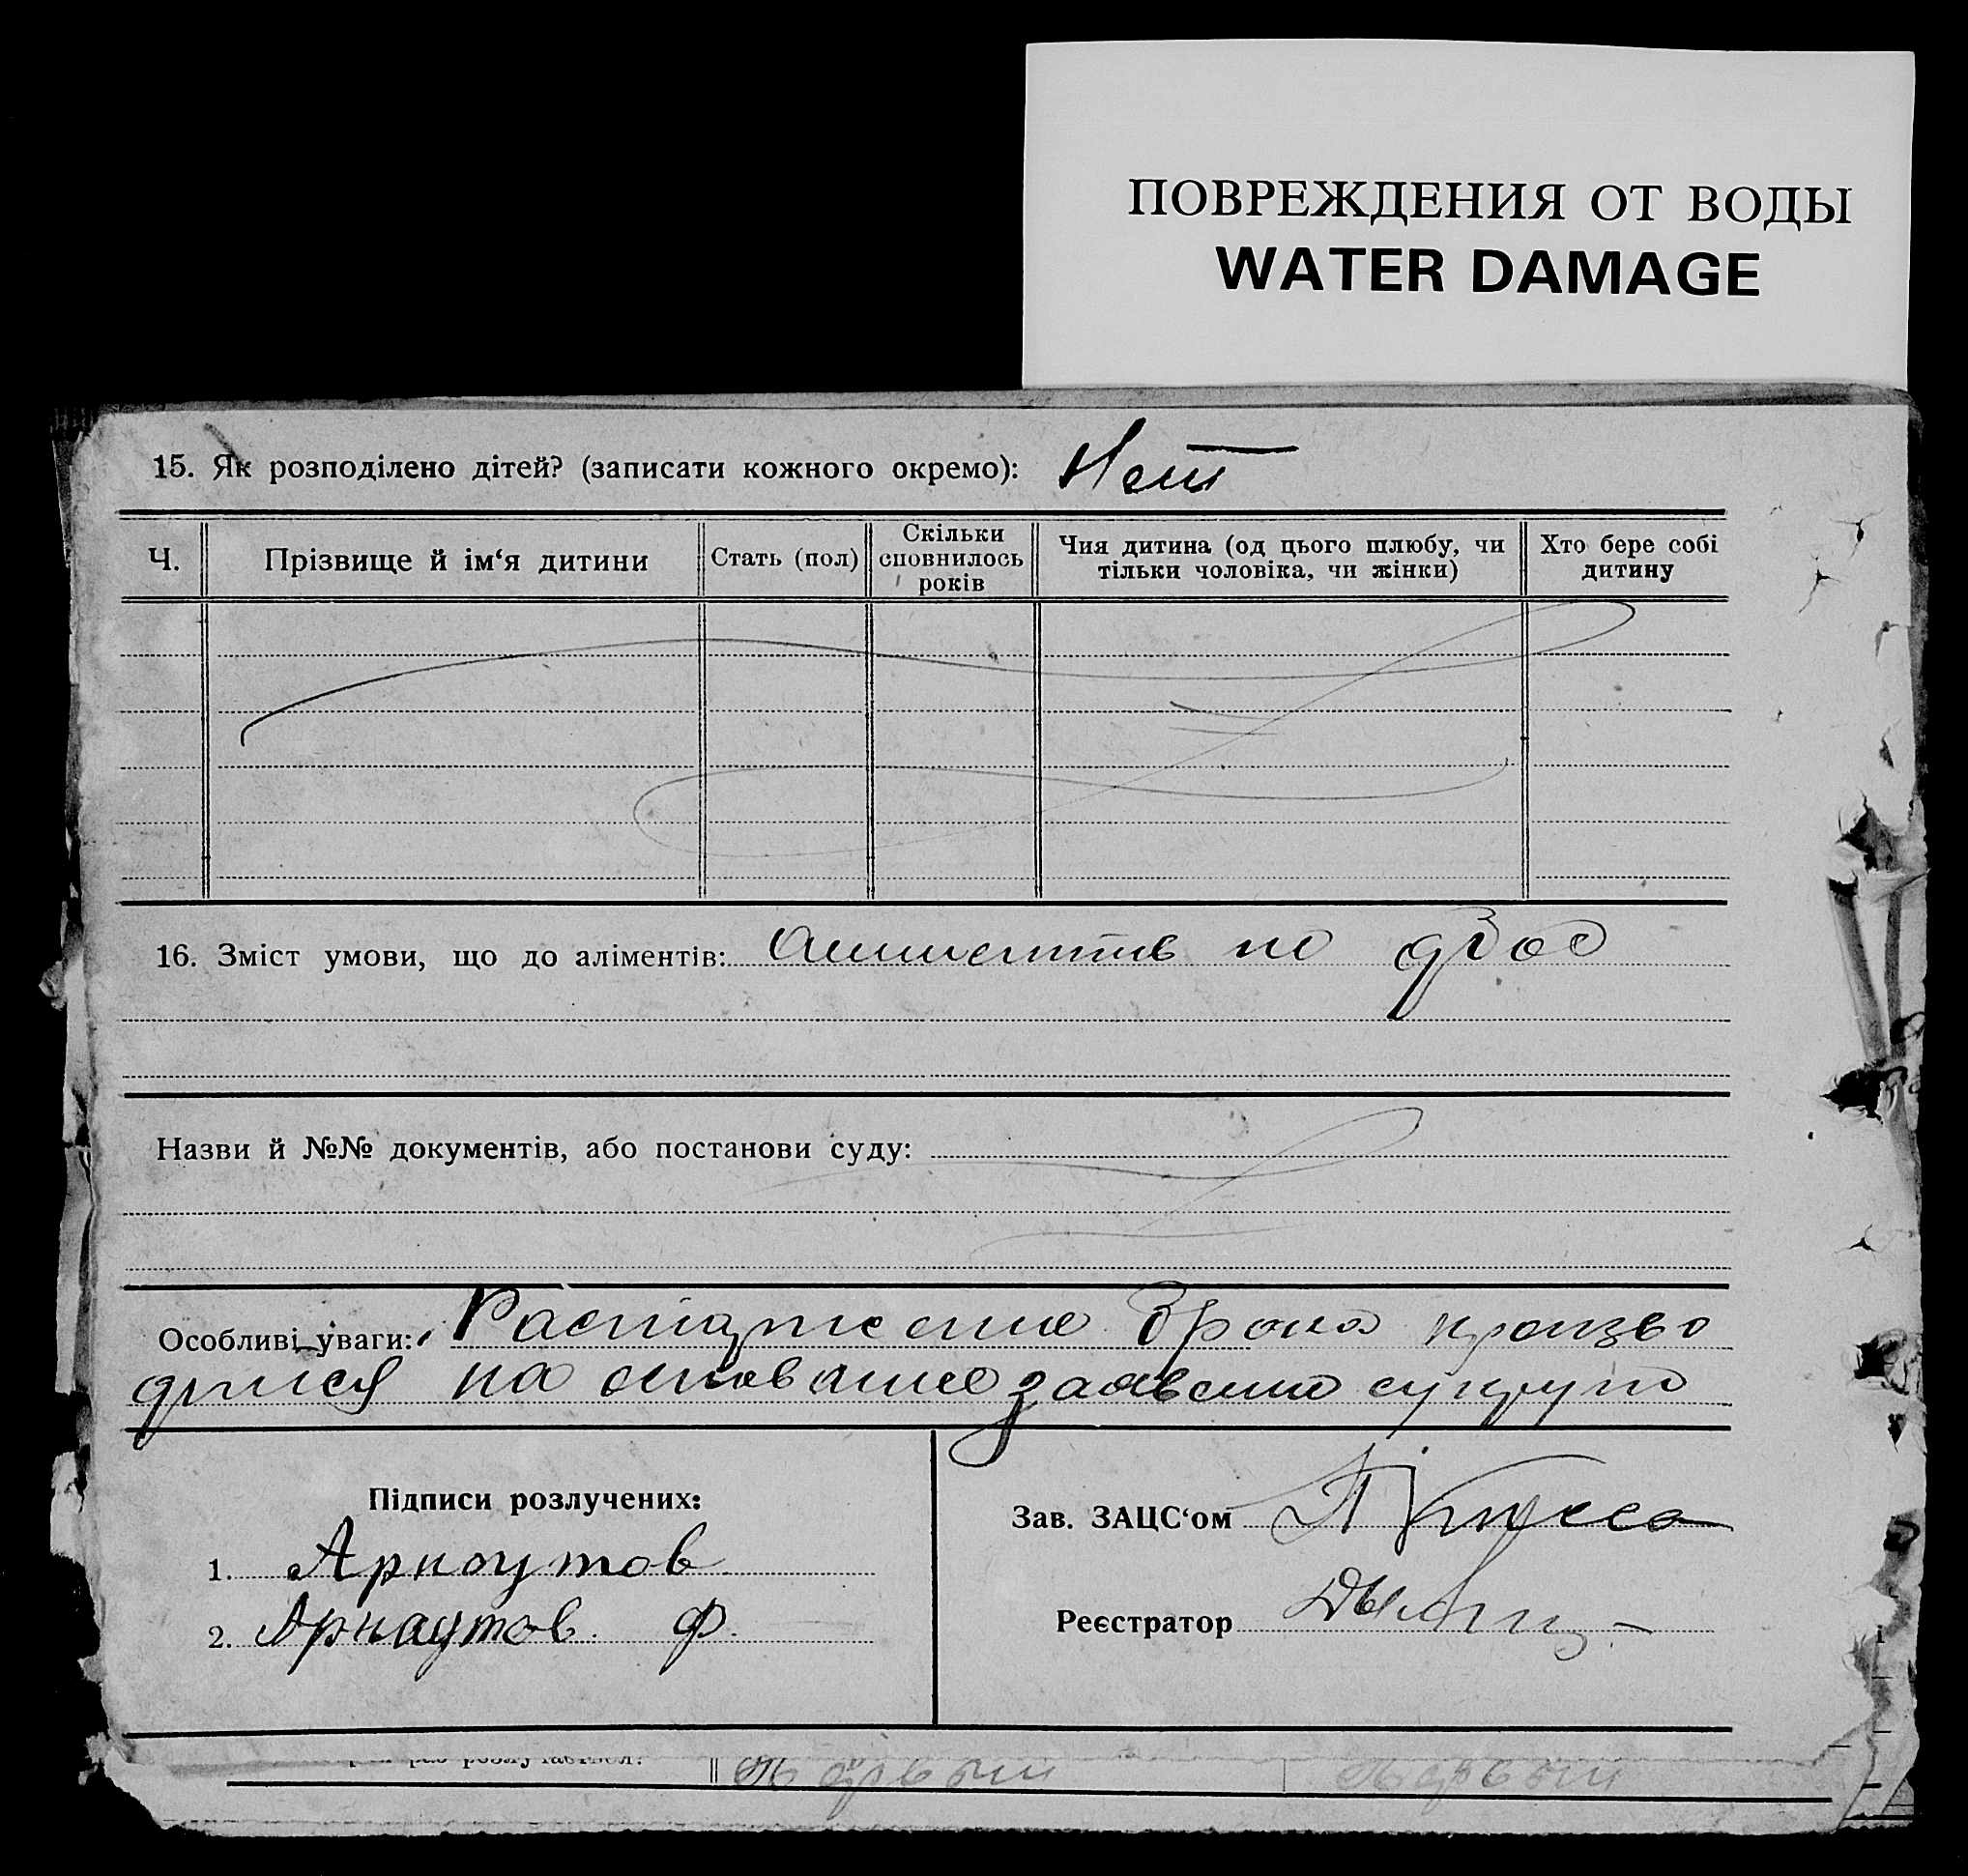 ПОВРЕЖДЕНИЯ ОТ ВОДЫ
WATER DAMAGE
15. Як розподілено дітей? (записати кожного окремо): Нет
Ч.
Прізвище й ім‘я дитини
Стать (пол)
Скільки
сповнилось
років
Чия дитина (од цього шлюбу, чи
тільки чоловіка, чи жінки)
Хто бере собі
дитину
16. Зміст умови, що до аліментів:
Назви й №№ документів, або постанови суду:
Особливі уваги: брака произво
дится на заявения супруга
Підписи розлучених:
1. Арноутов
2. Арнаутов Ф.
Зав. ЗАЦС‘ом
Реєстратор
раз розлучаєтеся:
первый первый